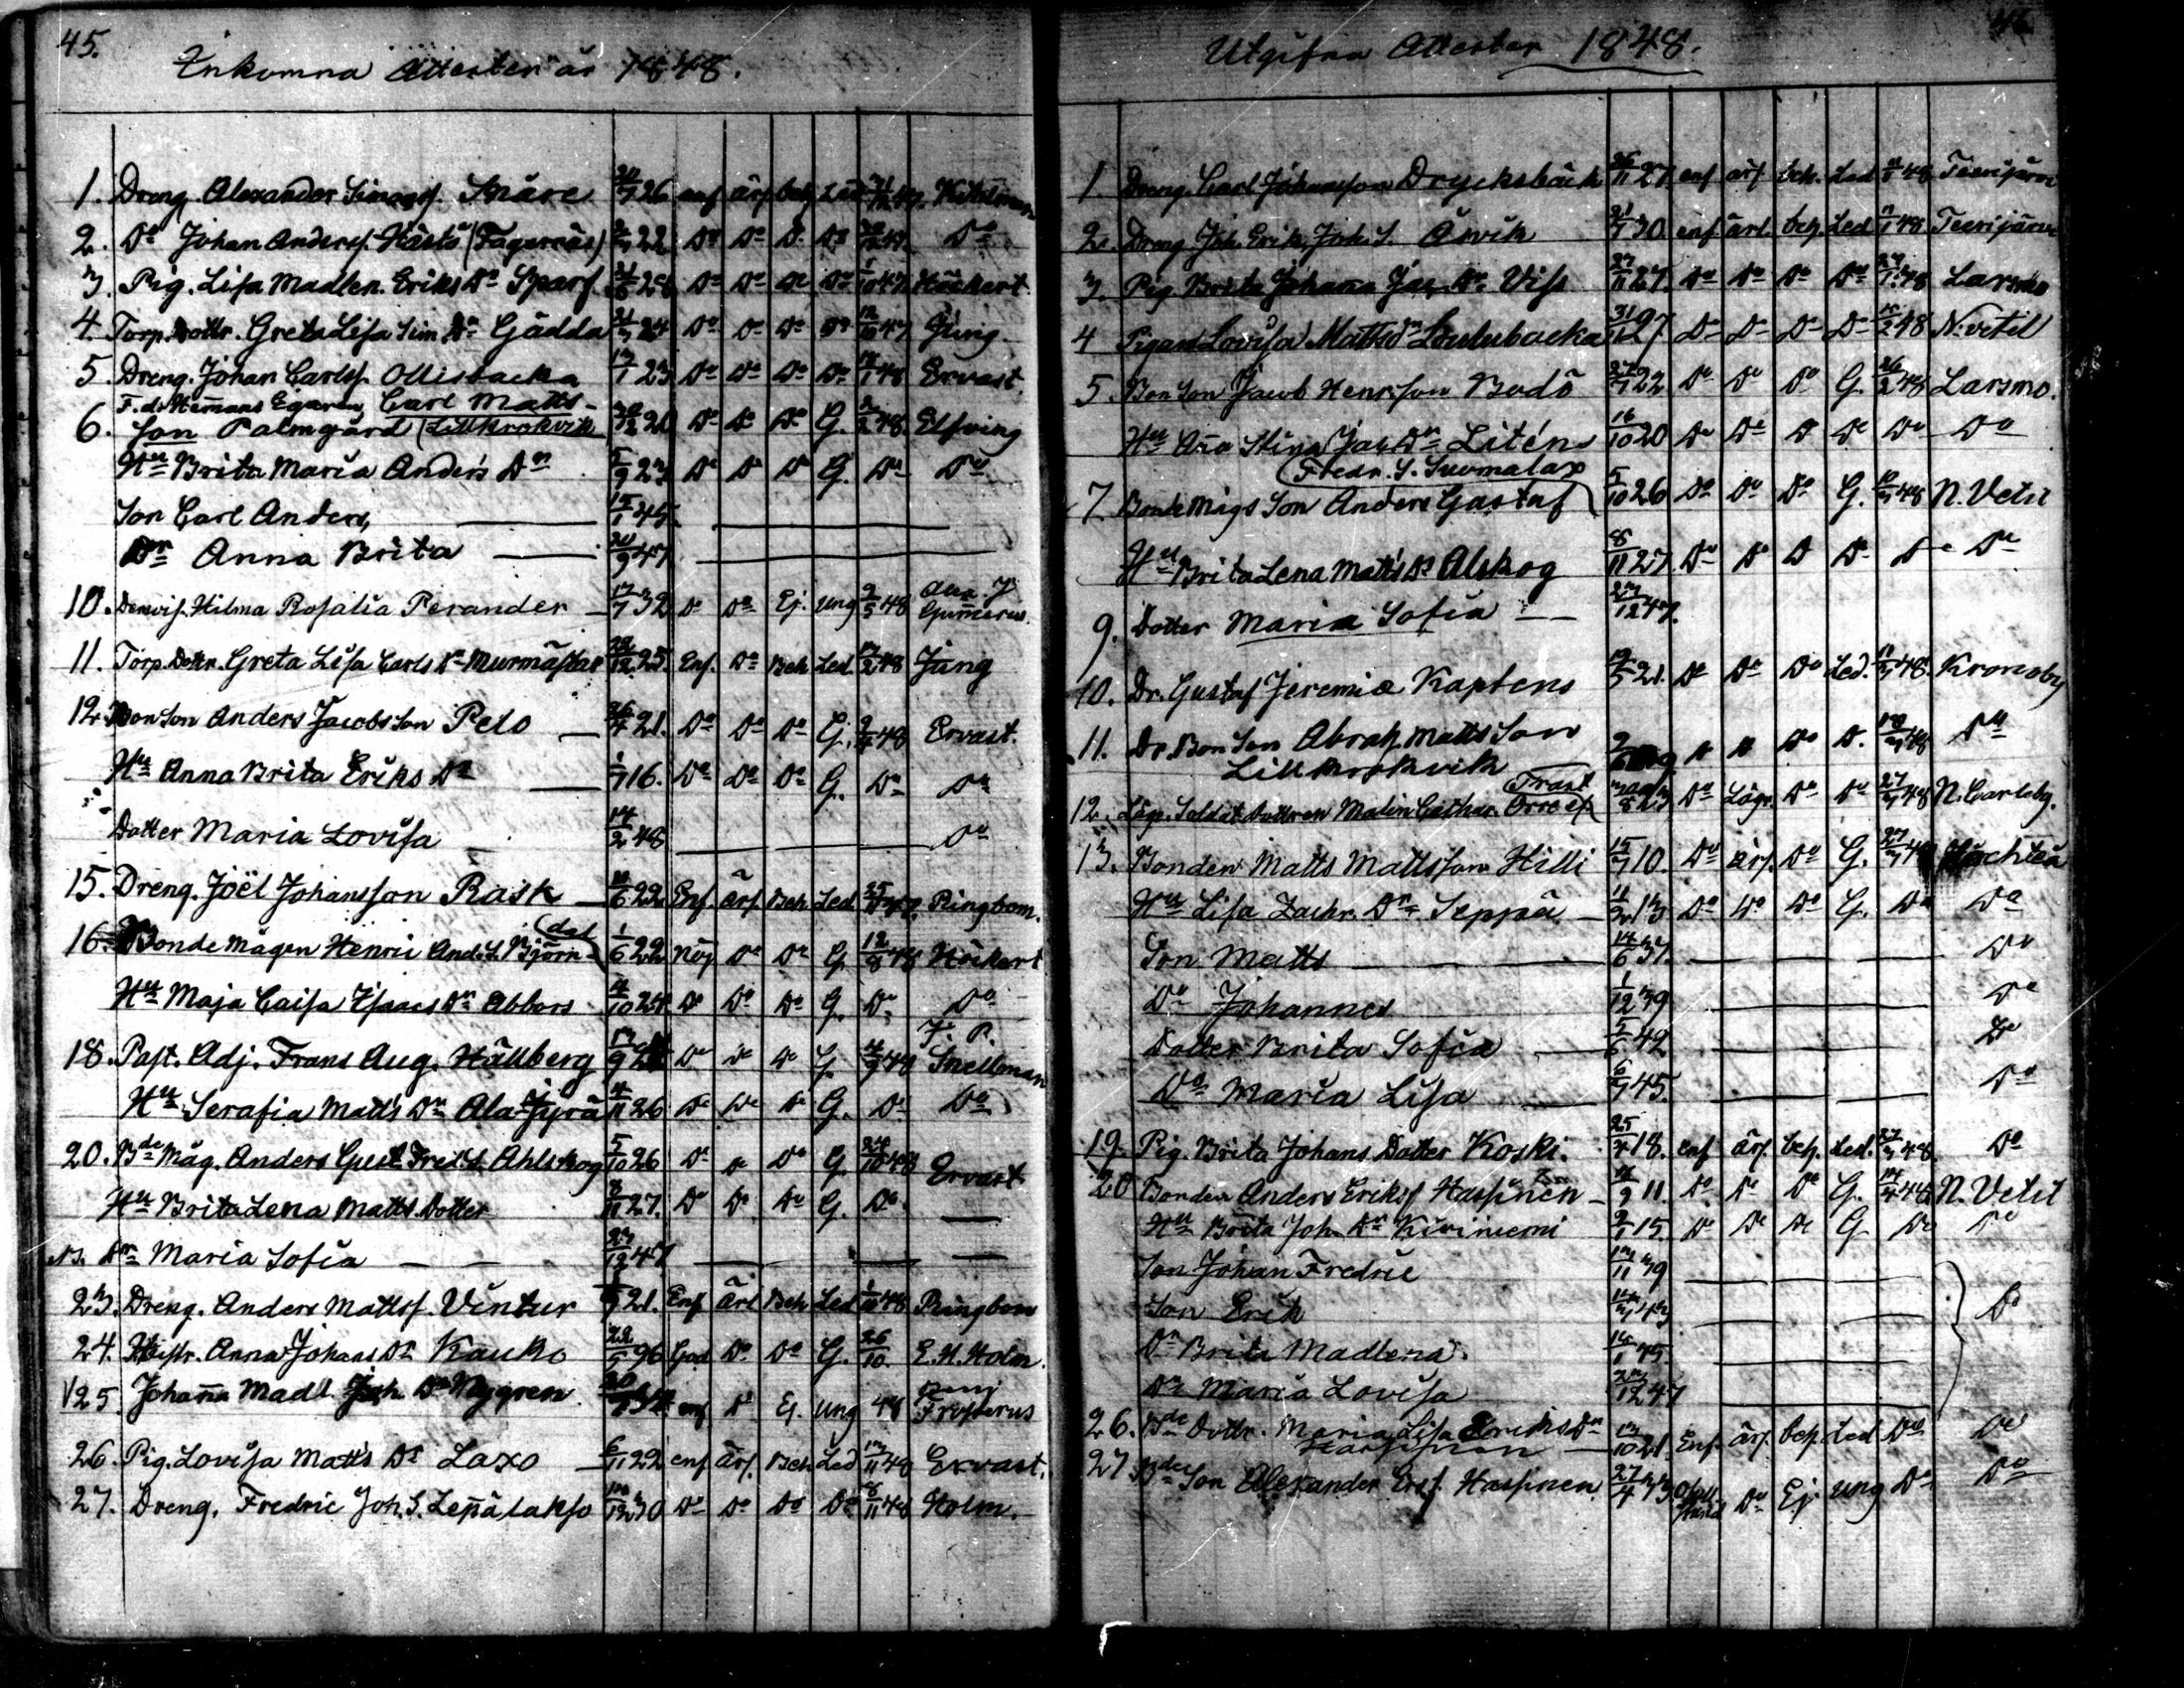 45.
Inkomna Attester år 1848.
1. Dreng. Alexander Simonss. Snåre 26 enf ärf beh Led
2. Do Johan Anderss. Hästö (Fagernäs) 22 Do Do Do Do Do
3. Pig. Lisa Madlen. Eriks Dr Sparf 28 Do Do Do Do 47 Häckert
4. Torp. Dottr. Greta Lisa Sim. Dr Gädda 24 Do Do Do Do 47 Jung
5. Dreng. Johan Carlss. Ollisbacka 23 Do Do Do Do 48 Ervast
F. d. Hemans Egaren Carl Matts-
6. Son Palmgård (Lillkrokvik 21 Do Do Do G. 48. Elfving
Hu Brita Maria Anders Dr 5/9 23 Do Do Do G. Do Do
Son Carl Anders 15/1 45
Dr Anna Brita 20/9 47
10. Demois. Hilma Rosalia Perander 17/7 32 Do Do Ej. ung 9/5 48 Gummerus
11. Torp. Dottr. Greta Lisa Carls Dr Murmästar 25. Enf. Do Beh Led. 48 Jung
12. Bon Son Anders Jacobs Son Pelo 26/4 21. Do Do Do G. 48 Ervast.
Hu Anna Brita Eriks Dr 1/7 16. Do Do Do G. Do Do
Dotter Maria Lovisa 14/2 48 Do
15. Dreng. Joël Johansson Rask 22 Enf ärf. Beh Led Ringbom.
16. Bonde mågen Henric And. S. Björn- 1/6 22 Nöj Do Do G 12/8 48 Häckert
Hu Maja Caisa Isaacs Dr Abbors 4/10 24 Do Do Do G. Do Do
18. Past. Adj. Frans Aug. Hällberg Do Do Do G 48 J. R. Snellman
Hu Serafia Matts Dr Ala-Jyrä 4/11 26 Do Do Do G. Do Do
20. Bde Måg. Anders Gust. Fred. S. Ahlskog 5/10 26 Do Do Do G. 24/10 48 Ervast
Hu Brita Lena Matts Dotter 8/11 27. Do Do Do G. Do
Dr Maria Sofia 23/12 47
23. Dreng. Anders Mattss. Ventur 21. Enf ärl Beh Led 48 Ringbom
24. Anna Johans Dr Kauko 22/5 96 God Do Do G. 26/10. E. H. Holm.
25 Johanna Madl. Joh. Dr Nygren enf Do Ej. ung 48 Frosterus
26. Pig. Lovisa Matts Dr Laxo 6/11 22 enf ärf. Beh Led 48 Ervast.
27. Dreng. Fredric Joh. S. Lepälakso 30 Do Do Do Do 48 Holm.
46
Utgifna Attester 1848.
1 Dreng. Carl Johansson Drycksbäck 27 enf ärf. beh. Led 48 Teerijärvi
2. Dreng. Joh. Erik Joh. S. Åsvik 21/7 30 enf ärl. beh. Led 48 Teerijärvi
3. Pig Brita Johanna Jac. Dr Viss 27. Do Do Do Do 48 Larsmo
4 Pigan Lovisa Matts Dr 27 Do Do Do Do 48 N. vetil
5. Bon Son Jacob Henrsson Bodö 22 Do Do Do G. 26/2 48 Larsmo.
Hu Ana Stina Jac. Dr Liténs 16/10 20 Do Do Do Do Do Do
Fredr. S. Suomalax
7. Bonde Mågs Son Anders Gustaf 5/10 26 Do Do Do G. 48 N. Vetil
Hu Brita Lena Matts Dr Alskog 8/11 27 Do Do Do Do Do Do
9. Dotter Maria Sofia 23/12 47.
10. Dr. Gustaf Jeremiæ Kaptens 19/5 21. Do Do Do Led. 48. Kronoby
11. Dr. Bon Son Abrah. Matts Son Do Do Do Do. 48 Do
Lillkrokvik
12. Lägr. Soldat Dottren Malin Cathar. Orre ( Trast Do Lägr. Do Do 48 N. Carleby.
13. Bonden Matts Mattsson Hilli 10. Do ärf. Do G. Lochteå
Hu Lisa Zachr. Dr Seppä 13 Do Do Do G. Do Do
Son Matts 14/6 37. Do
Do Johannes 1/12 39 Do
Dotter Brita Sofia 42 Do
Do Maria Lisa 45. Do
19. Pig. Brita Johans Dotter Koski. 25/4 18. enf ärf. beh. Led. 48. Do
20 Bonden Anders Erikss Hassinen 11. Do Do Do G. 14/4 48 N. Vetil
Hu Brita Joh. Dr Kiviniemi 15. Do Do Do G Do Do
Son Johan Fredric 39
Son Erik 43 Do
Dr Brita Madlena.
Dr Maria Lovisa 47
26. Bde Dottr. Maria Lisa Eriks Dr 21. Enf. ärf. beh. Led Do Do
Hassinen
27 Bde Son Alexander Erss. Hassinen 27/4 33 Do Ej ung Do Do